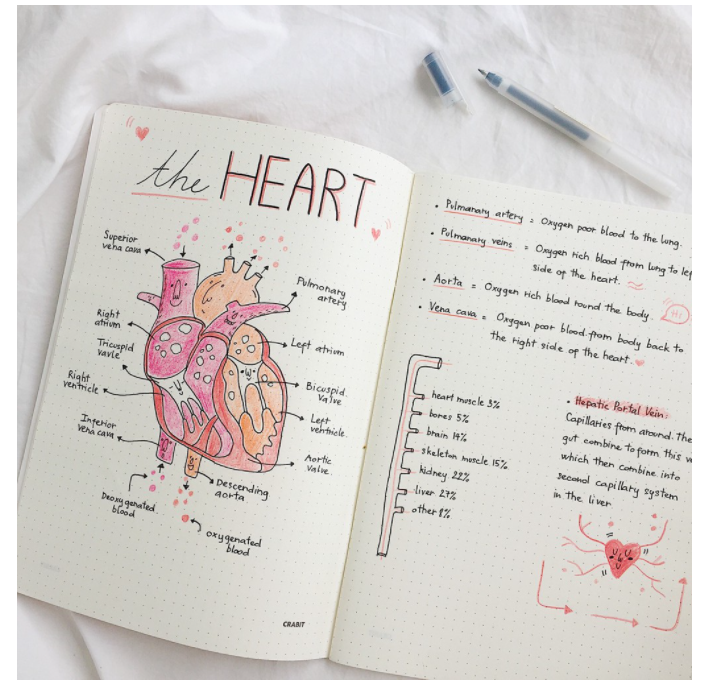 the HEART
Superior
vena cava
Right
atrium
Tricuspid
vavle
Right
ventricle
Inferior
vena cava
Deoxygenated
blood
Pulmonary
artery
Left atrium
Bicuspid
Valve
Left
ventricle
Aortic
valve.
Descending
aorta
oxygenated
blood
CRABIT
• Pulmanary artery = Oxygen poor blood to the lung.
• Pulmanary veins = Oxygen rich blood from lung to lef
side of the heart.
• Aorta = Oxygen rich blood round the body.
Hi
• Vena cava = Oxygen poor blood from body back to
the right side of the heart.
heart muscle 3%
bones 5%
brain 14%
skeleton muscle 15%
kidney 22%
liver 27%
other 8%
• Hepatic Portal Vein:
Capillaries from around. The
gut combine to form this v
which then combine into
second capillary system
in the liver